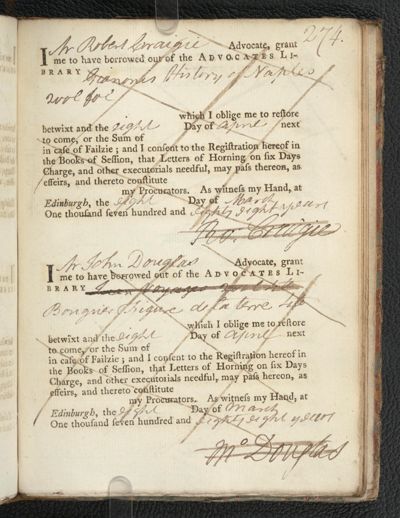 274.
I Mr Robert Craigie Advocate, grant
me to have borrowed out of the ADVOCATES LI-
BRARY Gianones History of Naples
2 vol fol
which I oblige me to reſtore
betwixt and the eight Day of April next
to come, or the Sum of
in caſe of Failzie; and I conſent to the Regiſtration hereof in
the Books of Seſſion, that Letters of Horning on ſix Days
Charge, and other executorials needful, may paſs thereon, as
effeirs, and thereto conſtitute
my Procurators. As witneſs my Hand, at
Edinburgh, the eight Day of March
One thouſand ſeven hundred and eighty eight years
Ro. Craigie
I Mr John Douglas Advocate, grant
me to have borrowed out of the ADVOCATES LI-
BRARY
Bougner Figure de la terre
which I oblige me to reſtore
betwixt and the eight Day of April next
to come, or the Sum of
in caſe of Failzie; and I conſent to the Regiſtration hereof in
the Books of Seſſion, that Letters of Horning on ſix Days
Charge, and other executorials needful, may paſs hereon, as
effeirs, and thereto conſtitute
my Procurators. As witneſs my Hand, at
Edinburgh, the eight Day of March
One thouſand ſeven hundred and eighty eight years
Douglas